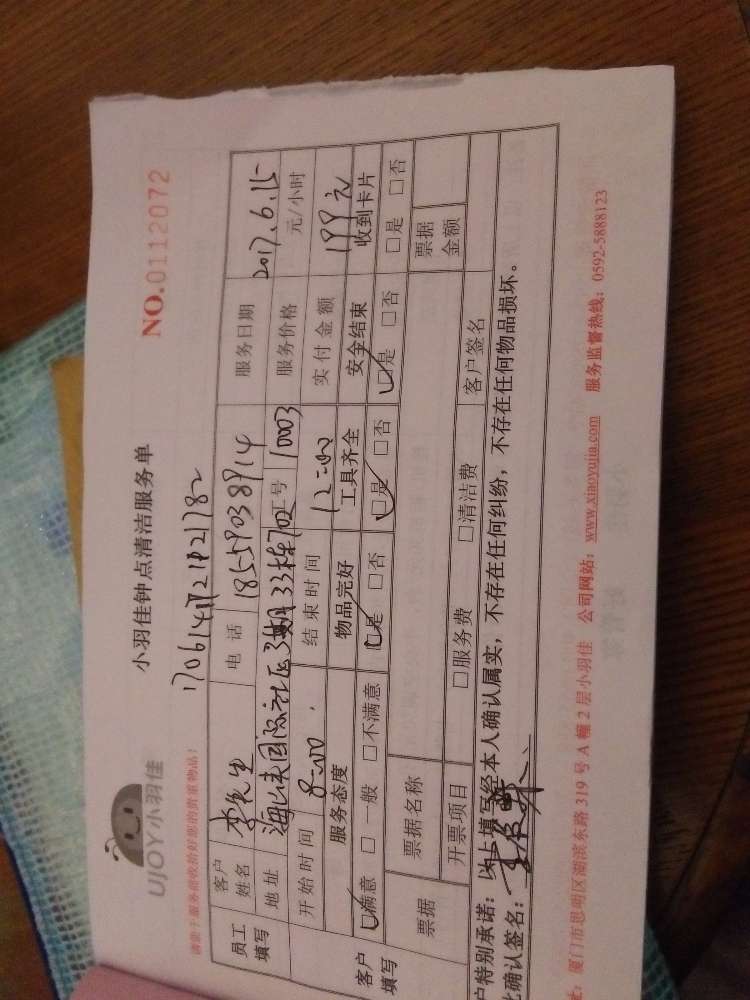 UJOY小羽佳
小羽佳钟点清洁服务单
NO.0112072
请您于服务前收拾好您的贵重物品!
员工填写
客户姓名
李先生
电话
18559038914
服务日期
2017.6.15
地址
海峡国际社区3期33栋702
工号
10003
服务价格
元/小时
开始时间
8:00
结束时间
12:00
实付金额
199元
客户填写
服务态度 物品完好 工具齐全 安全结束 收到卡片
□满意 □一般 □不满意 □是 □否 □是 □否 □是 □否 □是 □否
票据
票据名称
票据金额
开票项目
□服务费 □清洁费
客户签名
户特别承诺:以上填写经本人确认属实,不存在任何纠纷,不存在任何物品损坏。
此确认签名:
址:厦门市思明区湖滨东路319号A幢2层小羽佳 公司网站:www.xiaoyujia.com 服务监督热线:0592-5888123